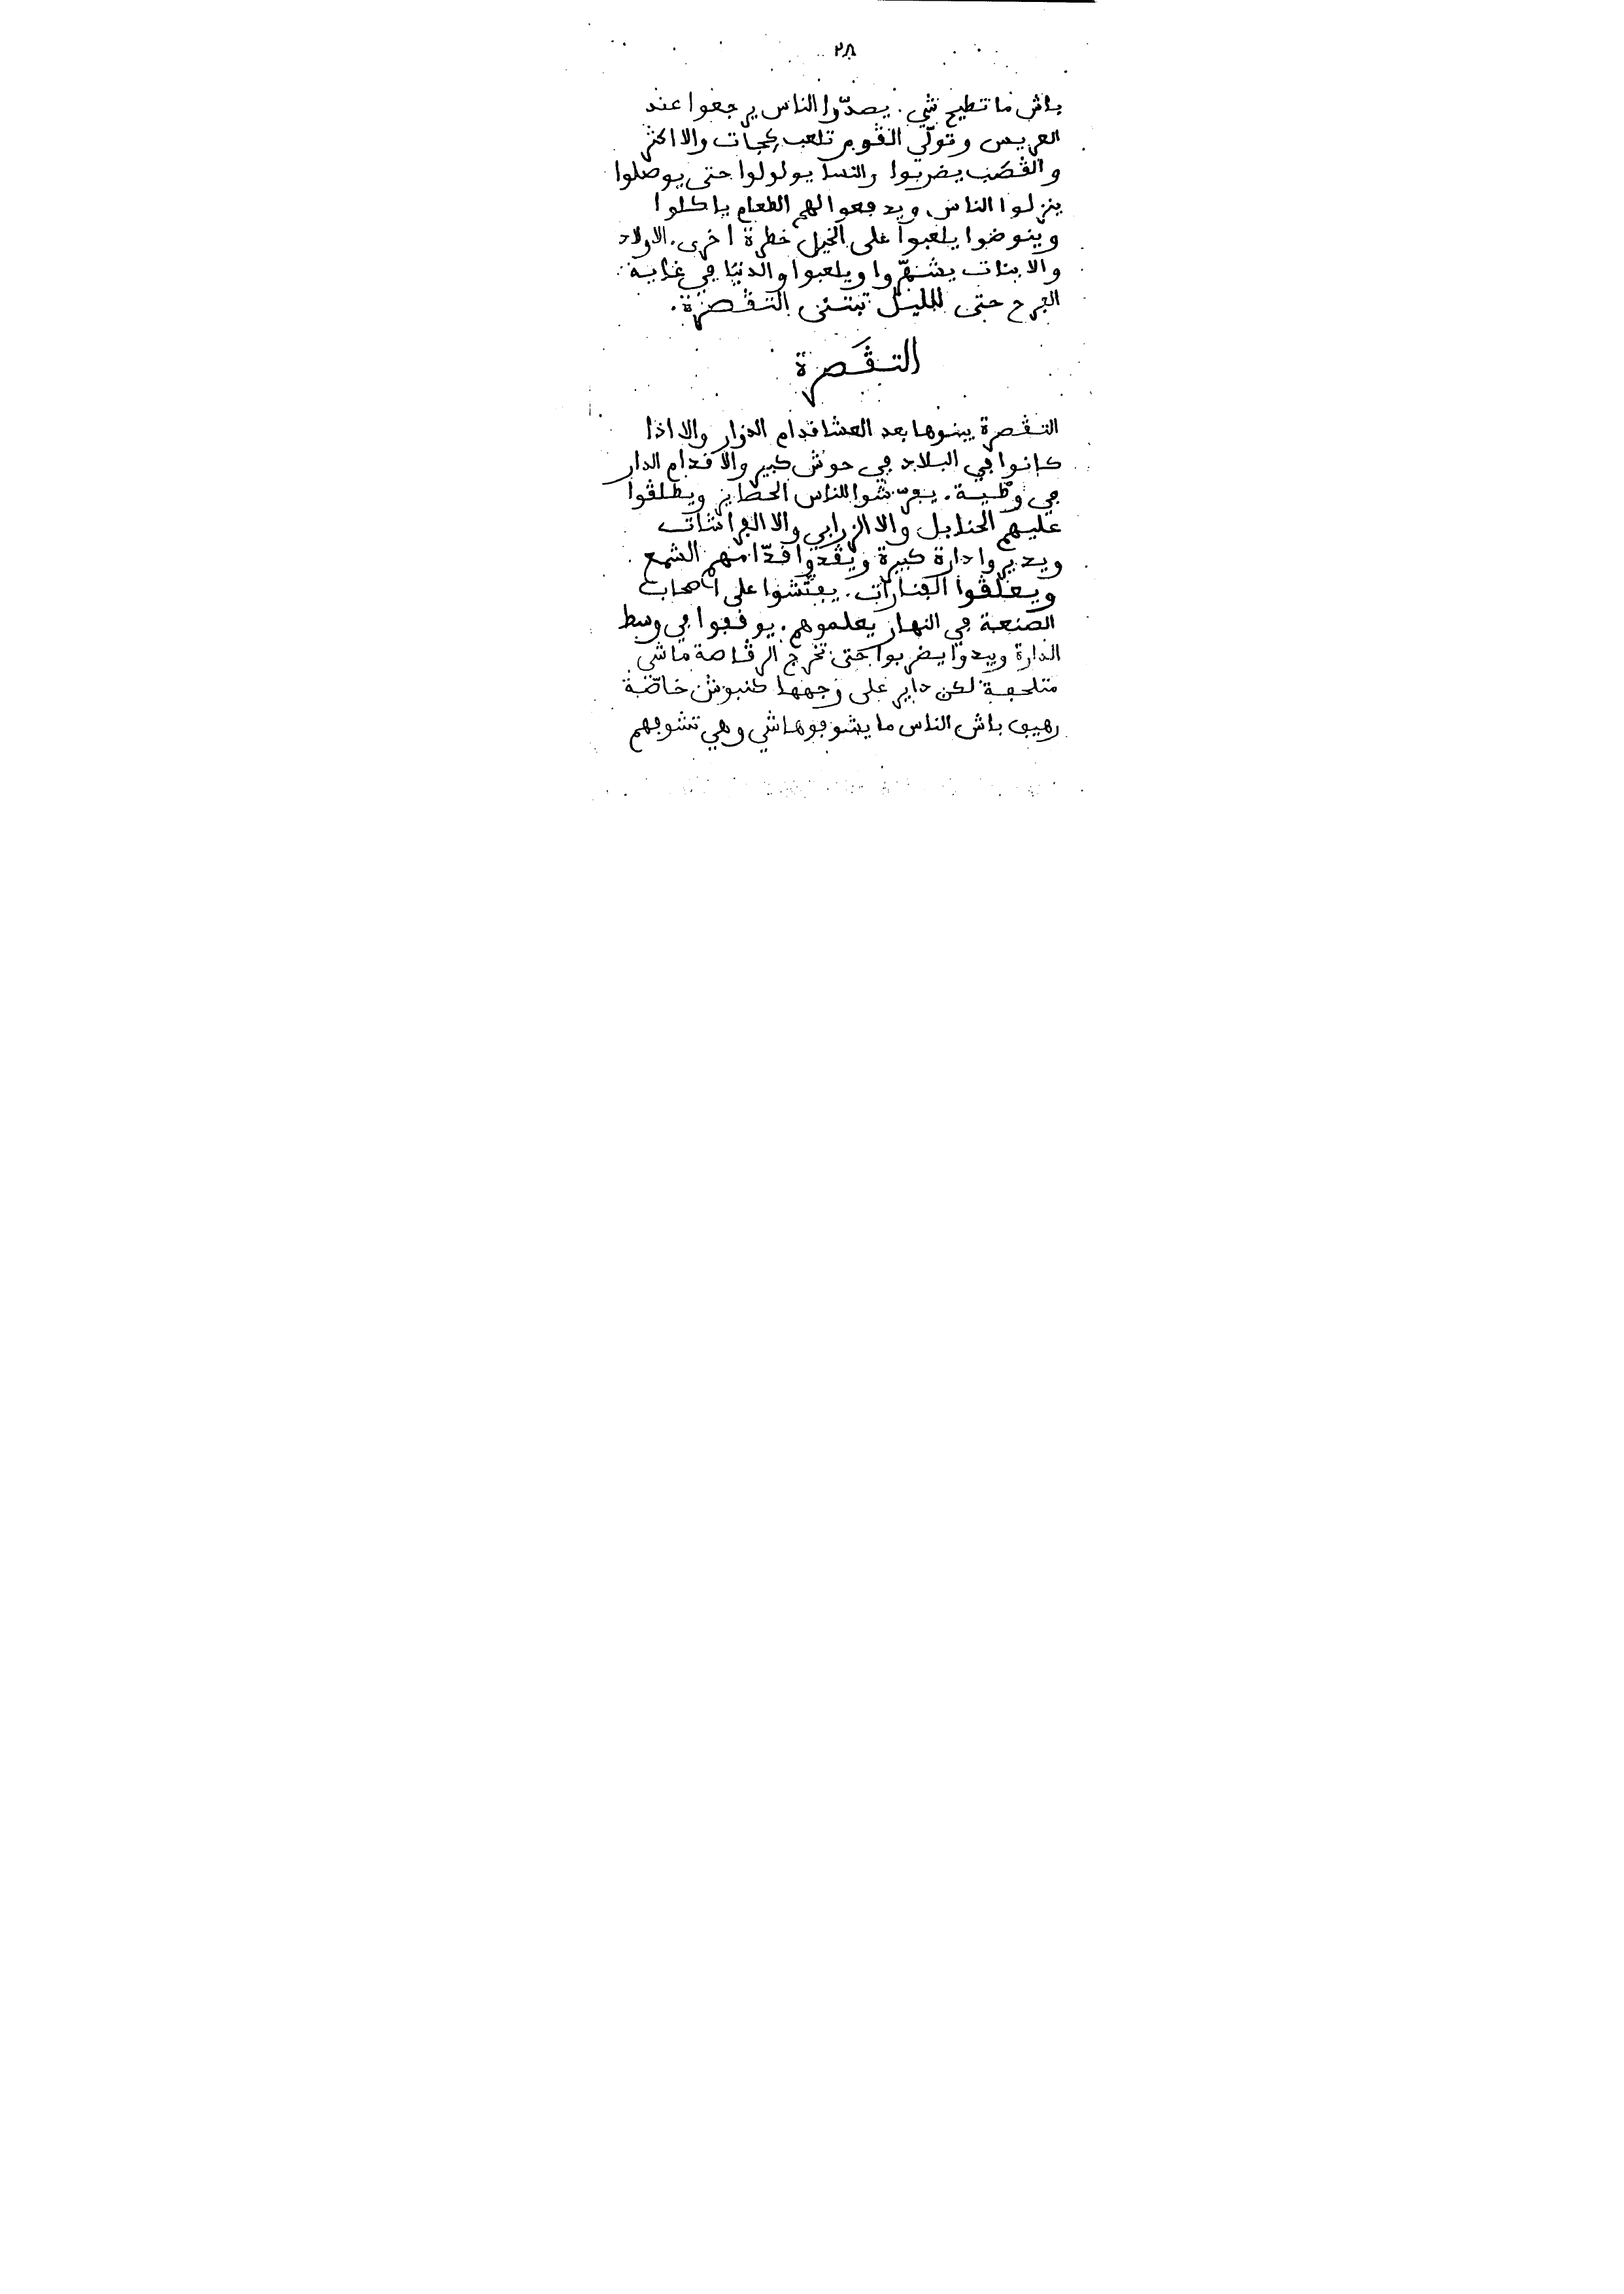 ٢٨
باش ما تطيح شي. يصدّوا الناس يرجعوا عند
العريس وتولّي الڤوم تلعب والا اكثر
والڤصب يضربوا والنسا يولولوا حتى يوصلوا
ينزلوا الناس ويدڢعوا لهم الطعام ياكلوا
وينوضوا يلعبوا على الخيل خطرة اخرى. الاولاد
والابنات يشهّروا ويلعبوا والدنيا ڢي غاية
الڢرح حتى لليل تبتنى التڤصرة.
التڤَصرة
التڤصرة يبنوها بعد العشا قدام الدوار والا اذا
كانوا ڢي البلاد ڢي حوش كبير والا قدام الدار
ڢي وطية. يڢرّشوا للناس الحصاير ويطلڤوا
عليهم الحنابل والا الزرابي والا الڢراشات
ويديروا دارة كبيرة ويڤدوا قدّامهم الشمع
ويعلّڤوا الڢنارات. يڢتّشوا على اصحاب
الصنعة ڢي النهار يعلموهم. يوقڢوا ڢي وسط
الدارة ويبدوا يضربوا حتى تخرج الرڤاصة ماشي
متلحڢة لكن داير على وجهها كنبوش خاصّة
رهيڢ باش الناس ما يشوڢوهاشي وهي تشوڢهم